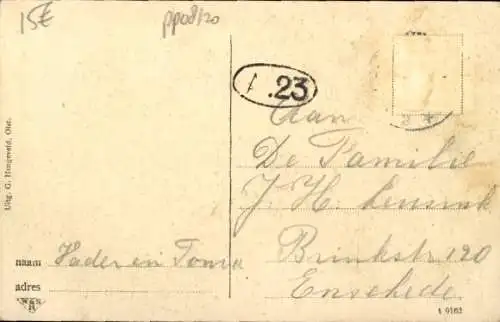 15€
pp08/20
.23
Aan
De Familie
J. H. Lensink
Brinkstr 120
Enschede.
naam Vader en Toma
adres
Uitg. G. Hoogeveld, Olst.
1 9162